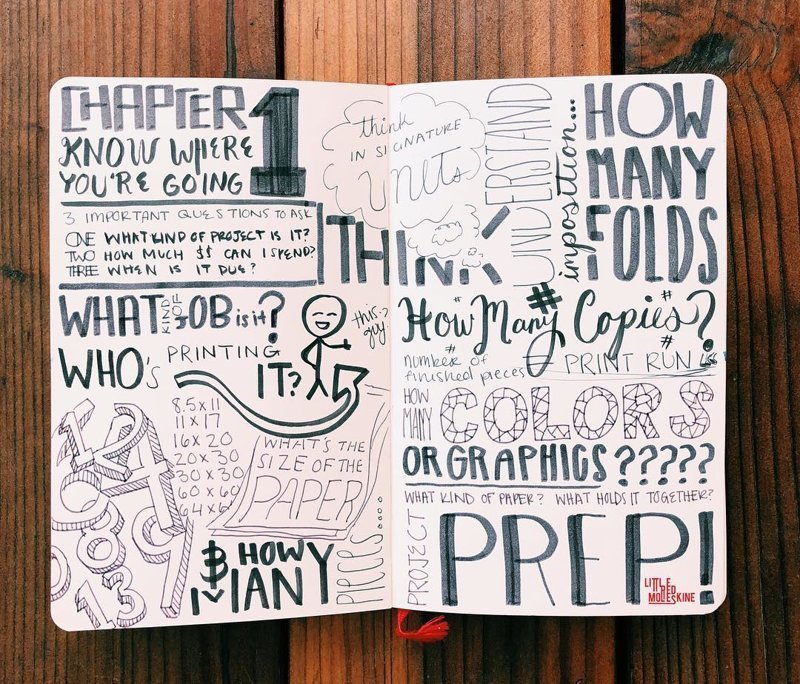 CHAPTER 1
KNOW WHERE
YOU'RE GOING
3 IMPORTANT QUESTIONS TO ASK
ONE WHAT KIND OF PROJECT IS IT?
TWO HOW MUCH $$ CAN I SPEND?
THREE WHEN IS IT DUE?
WHAT KIND OF JOB is it?
WHO's PRINTING
IT?
this guy
8.5 x 11
11 x 17
16 x 20
20 x 30
30 x 30
60 x 60
64 x 6
WHAT'S THE
SIZE OF THE
PAPER
HOW
MANY
PIECES....
think
IN SIGNATURE
UNITS
THINK
UNDERSTAND
imposition...
HOW
MANY
FOLDS
How Many Copies?
number of
finished pieces = PRINT RUN
HOW
MANY
COLORS
OR GRAPHICS ?????
WHAT KIND OF PAPER? WHAT HOLDS IT TOGETHER?
PROJECT
PREP!
LITTLE
RED
MOLESKINE